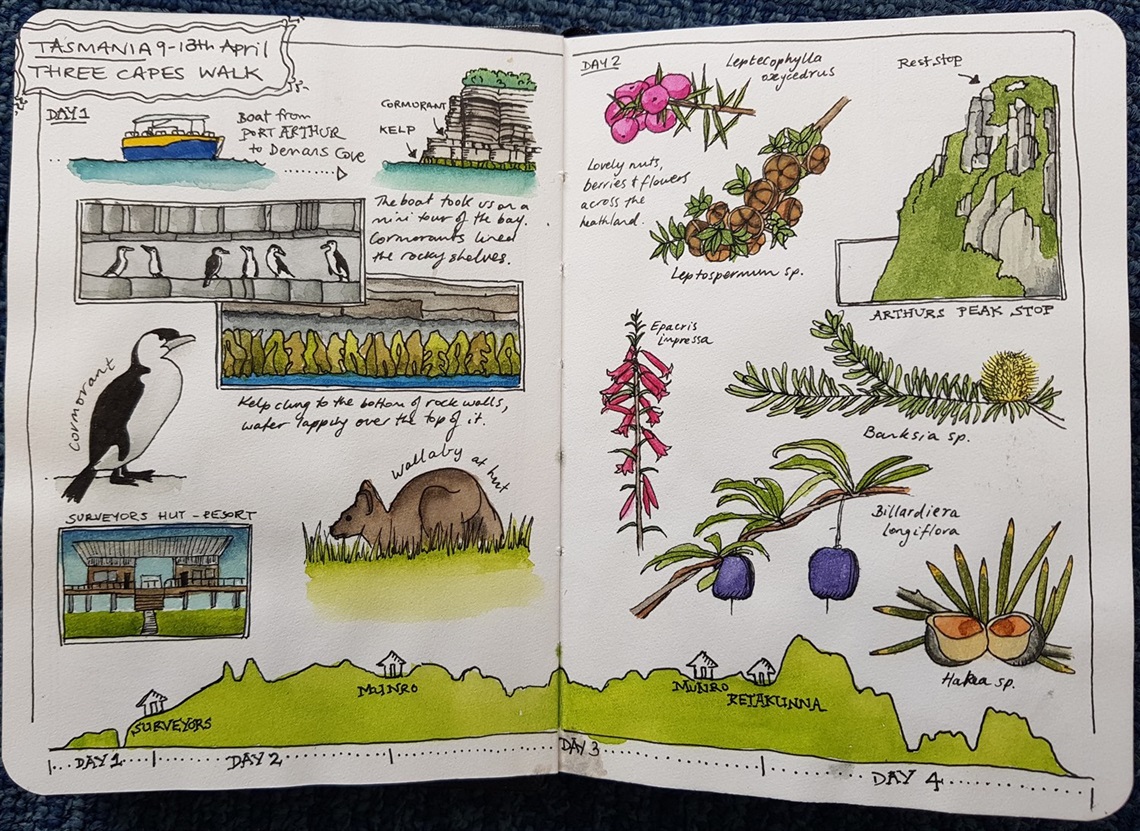 TASMANIA 9-13th April
THREE CAPES WALK
DAY 1
Boat from
PORT ARTHUR
to Denmans Cove
CORMORANT
KELP
The boat took us on a
mini tour of the bay.
Cormorants lined
the rocky shelves.
Cormorant
Kelp clung to the bottom of rock walls,
water lapping over the top of it.
wallaby at hut
SURVEYORS HUT - RESORT
DAY 2
Leptecophylla
oxycedrus
Rest stop
Lovely nuts,
berries & flowers
across the
heathland.
Leptospermum sp.
ARTHURS PEAK STOP
Epacris
impressa
Banksia sp.
Billardiera
longiflora
Hakea sp.
SURVEYORS
MUNRO
MUNRO
RETAKUNNA
DAY 1
DAY 2
DAY 3
DAY 4